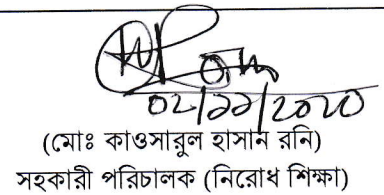 ০২/১১/২০২০
(মোঃ কাওসারুল হাসান রনি)
সহকারী পরিচালক (নিরোধ শিক্ষা)